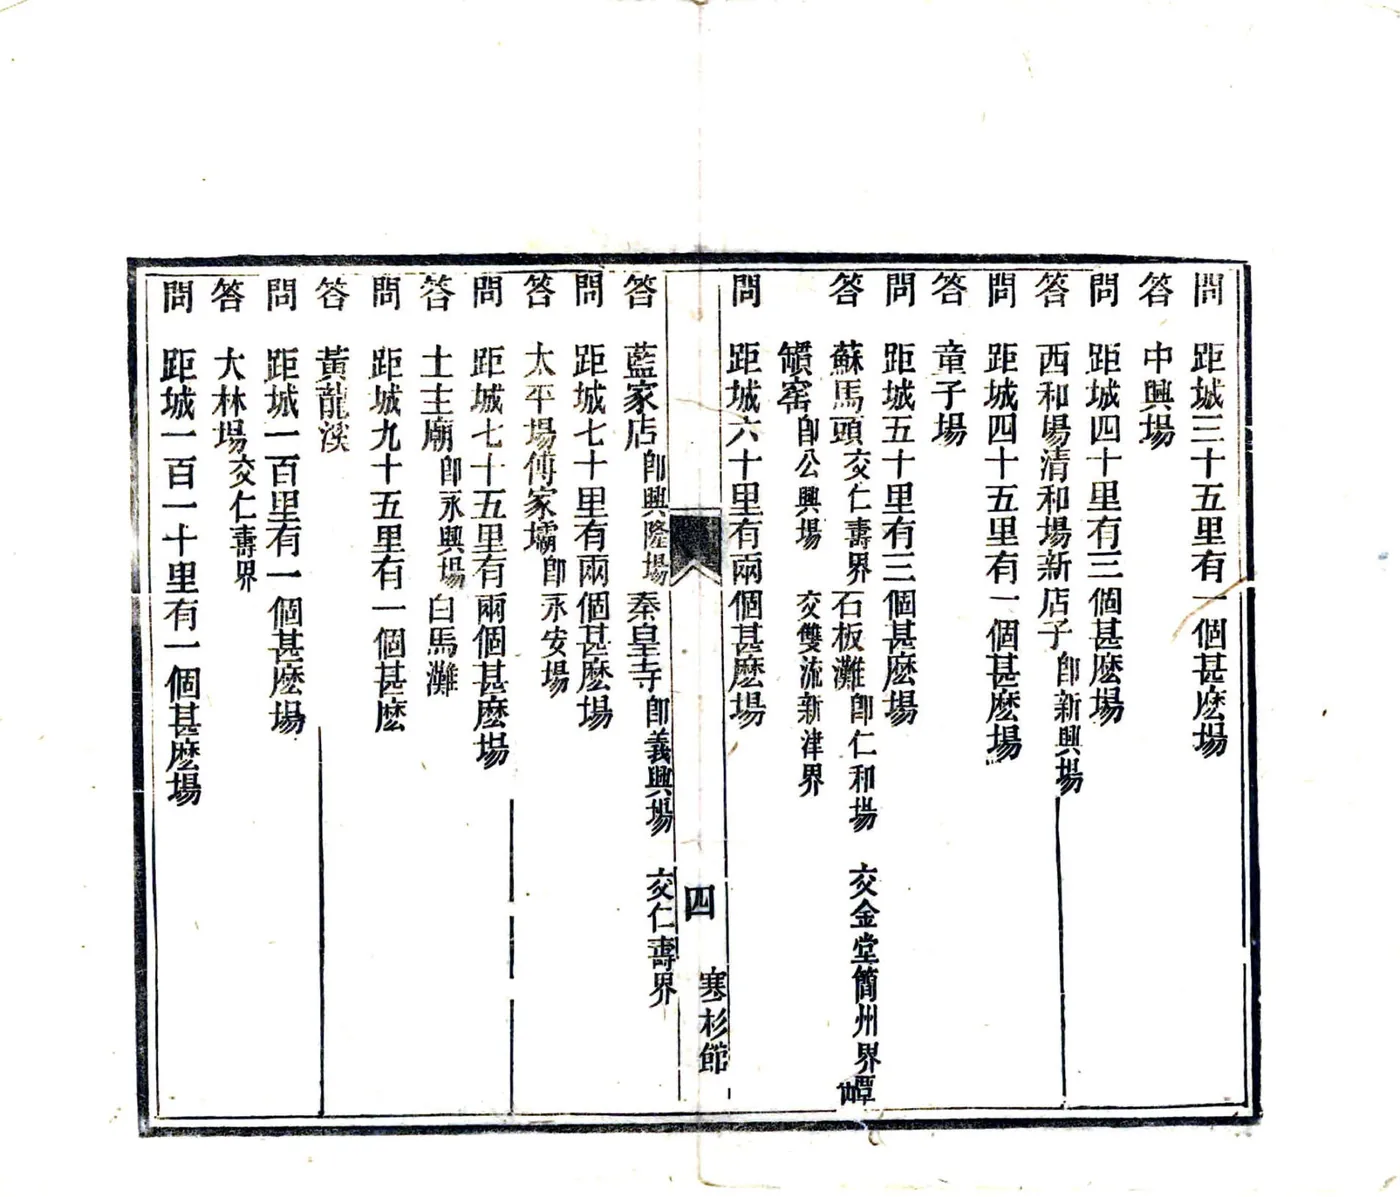 問　距城三十五里有一個甚麽場
答　中興場
問　距城四十里有三個甚麽場
答　西和場清和場新店子卽新興場
問　距城四十五里有一個甚麽場
答　童子場
問　距城五十里有三個甚麽場
答　蘇馬頭交仁壽界石板灘卽仁和場　交金堂簡州界
窰卽公興場　交雙流新津界
問　距城六十里有兩個甚麽場
四　寒杉館
答　藍家店卽興隆場秦皇寺卽義興場　交仁壽界
問　距城七十里有兩個甚麽場
答　太平場傅家壩卽永安場
問　距城七十五里有兩個甚麽場
答　土主廟卽永興場白馬灘
問　距城九十五里有一個甚麽
答　黃龍溪
問　距城一百里有一個甚麽場
答　大林場交仁壽界
問　距城一百一十里有一個甚麽場